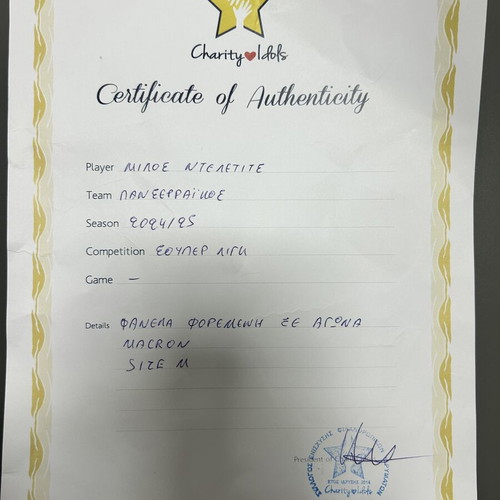 Charity Idols
Certificate of Authenticity
Player ΜΙΛΟΣ ΝΤΕΛΕΤΙΤΣ
Team ΠΑΝΣΕΡΡΑΪΚΟΣ
Season 2024/25
Competition ΣΟΥΠΕΡ ΛΙΓΚ
Game —
Details ΦΑΝΕΛΑ ΦΟΡΕΜΕΝΗ ΣΕ ΑΓΩΝΑ
MACRON
SIZE M
President of
ΕΤΟΣ ΙΔΡΥΣΗΣ 2014
Charity Idols